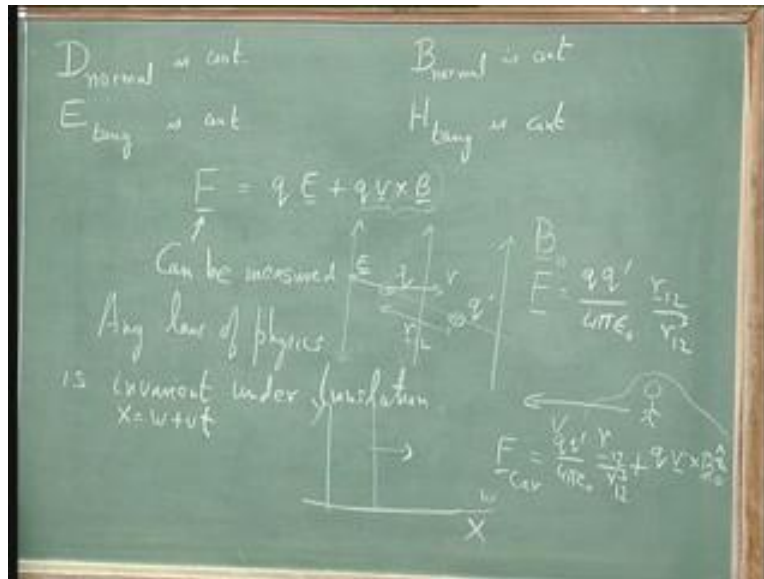 D normal is cont.
B normal is cont
E tang is cont
H tang is cont
F = q E + q v × B
Can be measured
E
q
v
B₀
q'
r₁₂
F = qq' / 4πε₀ r₁₂ / r₁₂³
Any law of physics
is invariant under translation
x = w + vt
v
F = qq' / 4πε₀ r₁₂ / r₁₂³ + q v × B₀
w
X